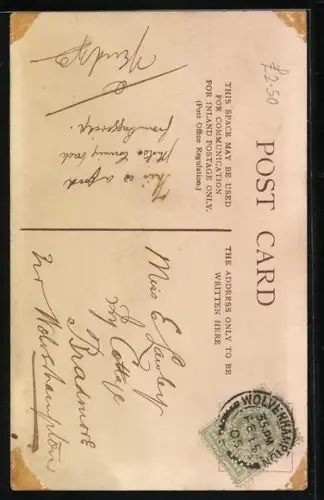 £2.50
POST CARD
THIS SPACE MAY BE USED
FOR COMMUNICATION
FOR INLAND POSTAGE ONLY.
(Post Office Regulation.)
This is a good
photo coming back
from
THE ADDRESS ONLY TO BE
WRITTEN HERE
Miss E Lawley
Ivy Cottage
Bradmore
Nr Wolverhampton
WOLVERHAMPTON
05